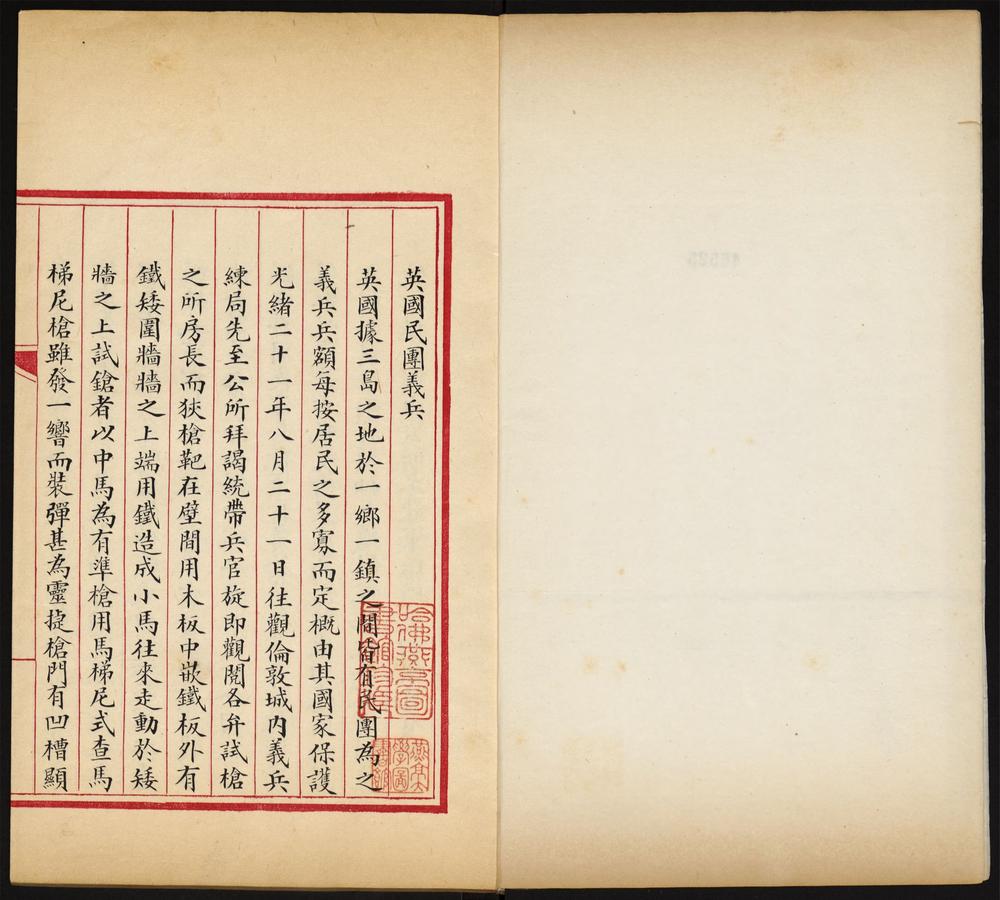 英國民團義兵
英國據三島之地於一鄉一鎮之間皆有民團為之
義兵兵額每按居民之多寡而定概由其國家保護
光緒二十一年八月二十一日往觀倫敦城內義兵
練局先至公所拜謁統帶兵官旋即觀閱各弁試槍
之所房長而狹槍靶在壁間用木板中嵌鐵板外有
鐵矮圍牆牆之上端用鐵造成小馬往來走動於矮
牆之上試鎗者以中馬為有準槍用馬梯尼式查馬
梯尼槍雖發一響而裝彈甚為靈捷槍門有凹槽顯